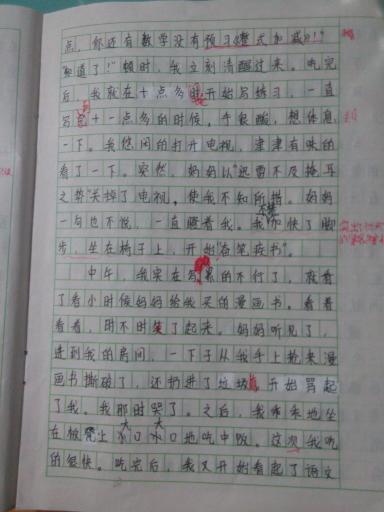 点,你还有数学没有预习《整式加减》!"
"知道了!"顿时,我立刻清醒过来。吃完
后,我就在十点多时开始写练习,一直
写到十一点多的时候,手很酸,想休息
一下。我悠闲的打开电视,津津有味的
看了一下。突然,妈妈以"迅雷不及掩耳
之势"关掉了电视,使我不知所措。妈妈
一句也不说,一直瞪着我。我加快了脚
步,坐在椅子上,开始"奋笔疾书"。
中午,我实在写累的不行了,就看
了看小时候妈妈给我买的漫画书。看着
看着,时不时笑了起来。妈妈听见了,
进到我的房间,一下子从我手上抢来漫
画书撕破了,还扔进了垃圾,开始骂起
了我。我那时哭了。之后,我乖乖地坐
在板凳上大口大口地吃中饭。这次我吃
的很快。吃完后,我又开始看起了语文